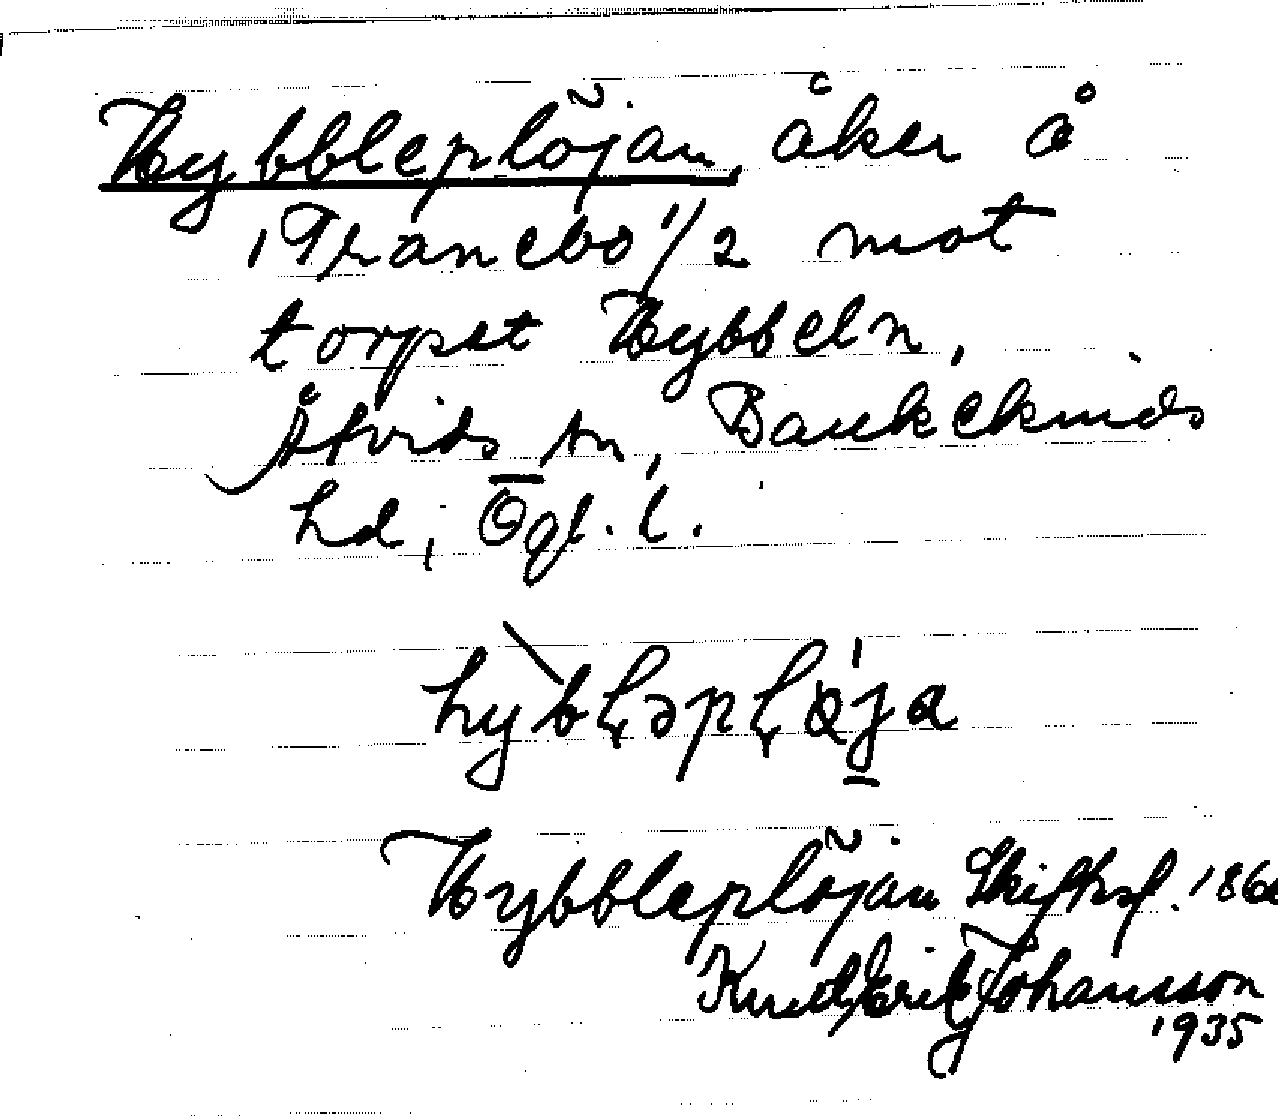 Hybbleplöjan, åker å
Tranebo 1/2 mot
torpet Hybbeln,
Åtvids sn, Bankekinds
hd, Ögl. l.
Hybbleplöjan Skifksf.
Knut Erik Johansson
1935